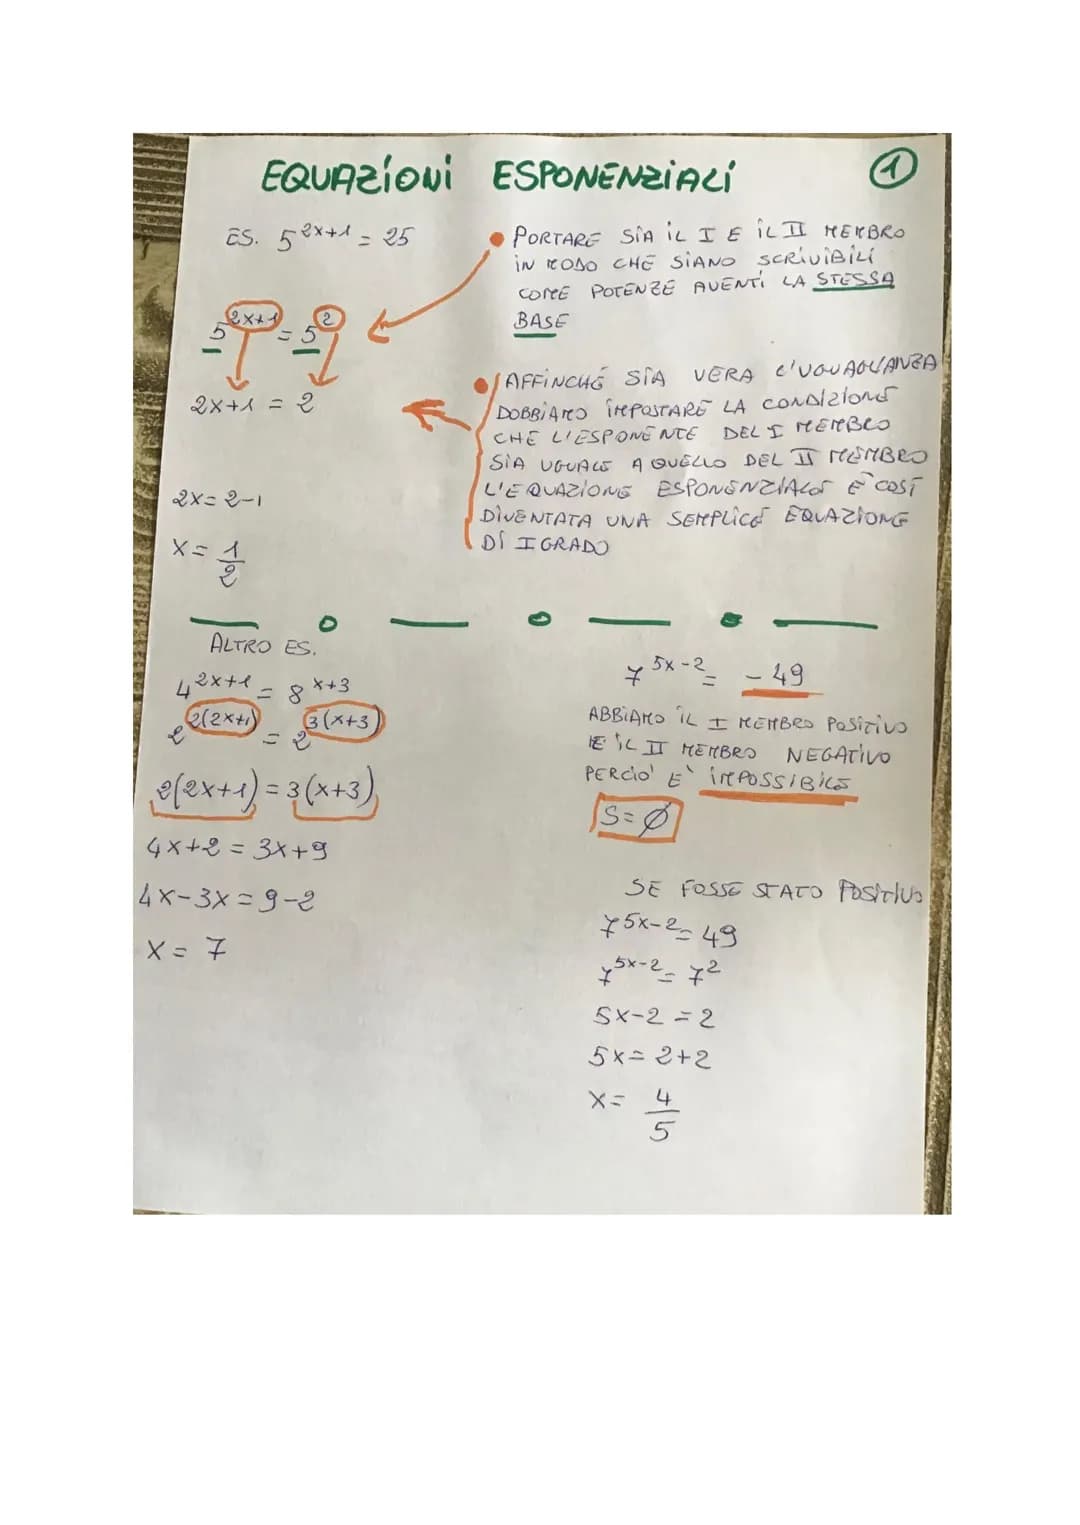 EQUAZIONI ESPONENZIALI
1
ES. 5^{2x+1} = 25
• PORTARE SIA IL I E IL II MEMBRO
IN MODO CHE SIANO SCRIVIBILI
COME POTENZE AVENTI LA STESSA
BASE
5^{2x+1} = 5^2
2x+1 = 2
• AFFINCHÉ SIA VERA L'UGUAGLIANZA
DOBBIAMO IMPOSTARE LA CONDIZIONE
CHE L'ESPONENTE DEL I MEMBRO
SIA UGUALE A QUELLO DEL II MEMBRO
L'EQUAZIONE ESPONENZIALE È COSÌ
DIVENTATA UNA SEMPLICE EQUAZIONE
DI I GRADO
2x = 2-1
x = 1/2
ALTRO ES.
4^{2x+1} = 8^{x+3}
2^{2(2x+1)} = 2^{3(x+3)}
2(2x+1) = 3(x+3)
4x+2 = 3x+9
4x-3x = 9-2
x = 7
7^{5x-2} = -49
ABBIAMO IL I MEMBRO POSITIVO
E IL II MEMBRO NEGATIVO
PERCIO' E' IMPOSSIBILE
S = Ø
SE FOSSE STATO POSITIVO
7^{5x-2} = 49
7^{5x-2} = 7^2
5x-2 = 2
5x = 2+2
x = 4/5